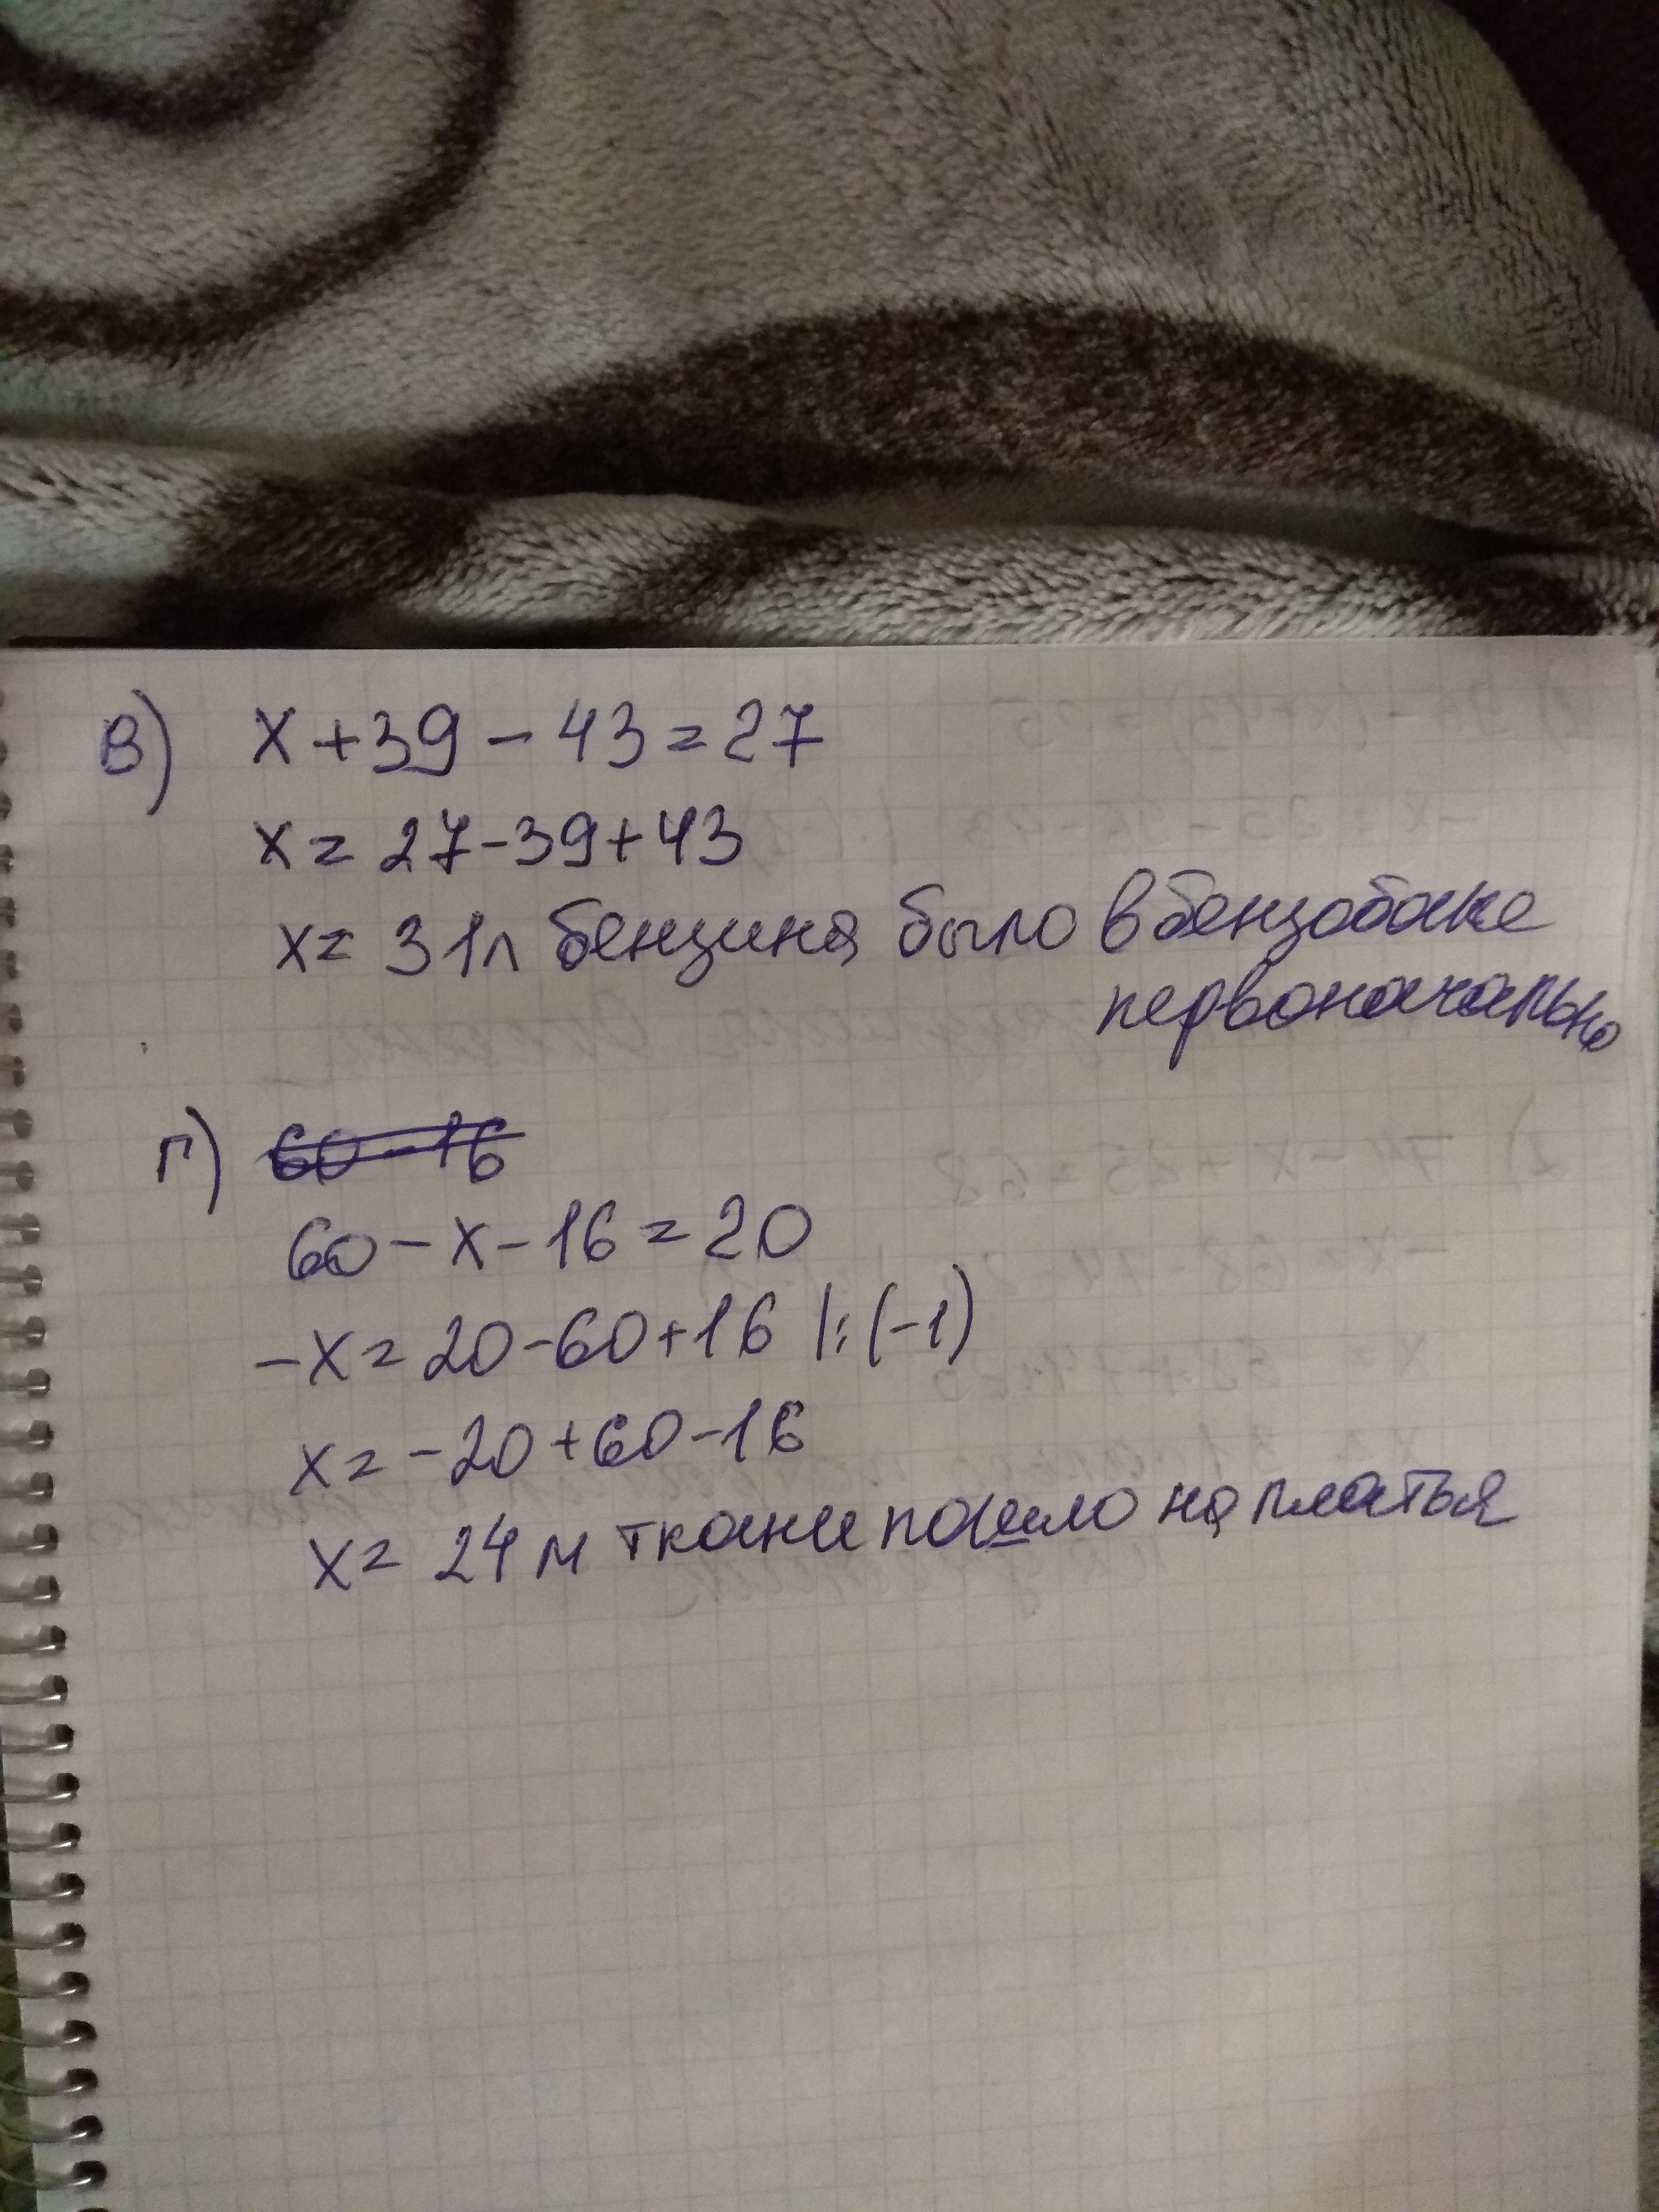 в) x + 39 - 43 = 27
x = 27 - 39 + 43
x = 31л бензина было в бензобаке
первоначально
г) 60 - 16
60 - x - 16 = 20
-x = 20 - 60 + 16 |:(-1)
x = -20 + 60 - 16
x = 24 м ткани пошло на платья